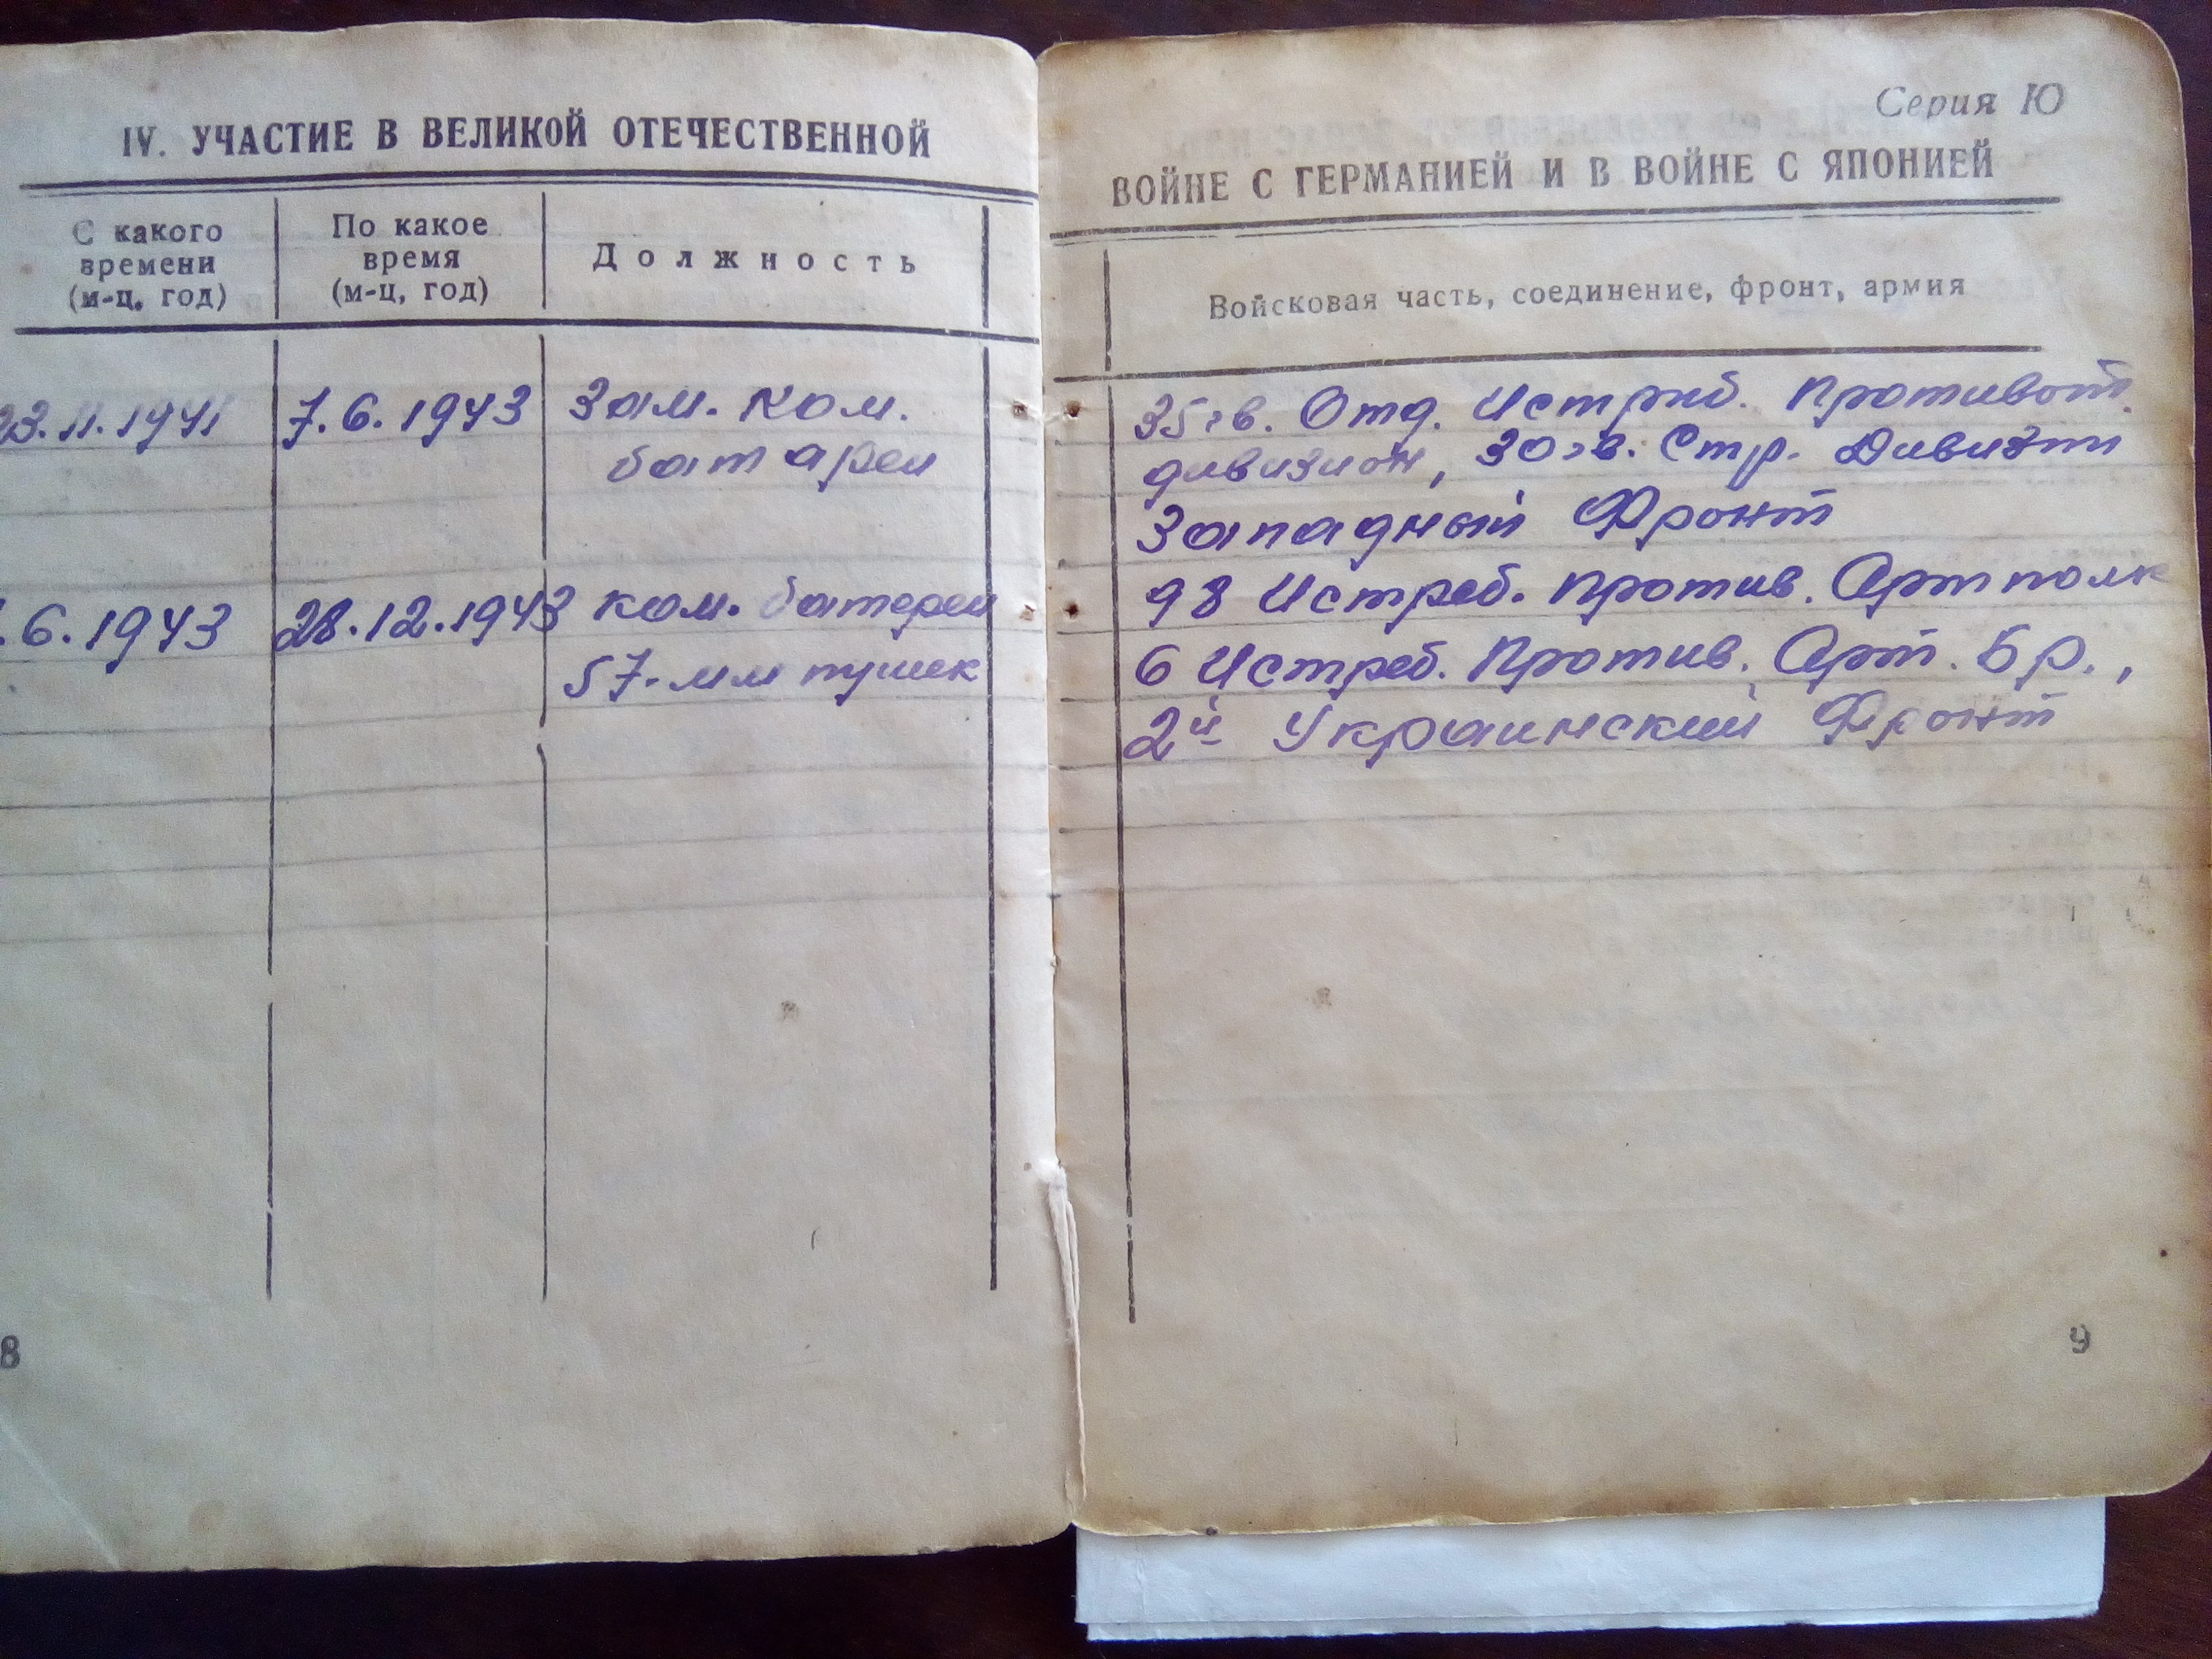 IV. УЧАСТИЕ В ВЕЛИКОЙ ОТЕЧЕСТВЕННОЙ
С какого
времени
(м-ц, год)
По какое
время
(м-ц, год)
Должность
23.11.1941
7.6.1943
Зам. Ком.
батареи
.6.1943
28.12.1943
ком. батереи
57-мм пушек
8
Серия Ю
ВОЙНЕ С ГЕРМАНИЕЙ И В ВОЙНЕ С ЯПОНИЕЙ
Войсковая часть, соединение, фронт, армия
35 гв. Отд. Истриб. Противот.
дивизион, 30 гв. Стр. Дивизии
Западный Фронт
98 Истреб. Против. Артполк
6 Истреб. Против. Арт. Бр.,
2й Украинский Фронт
9